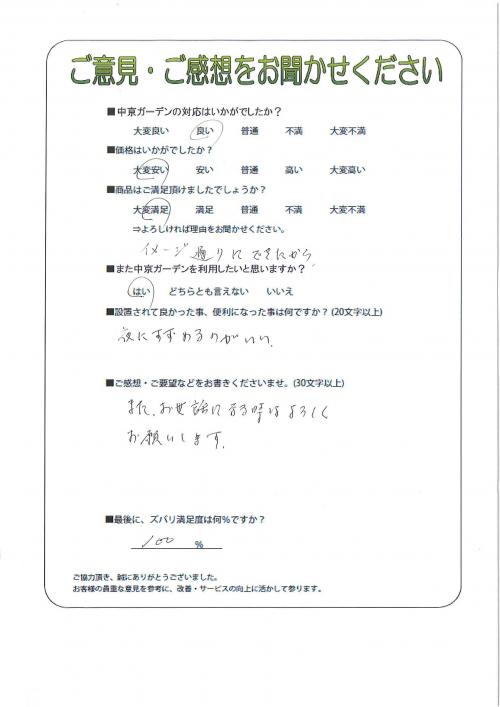 ご意見・ご感想をお聞かせください
■中京ガーデンの対応はいかがでしたか？
大変良い 良い 普通 不満 大変不満
■価格はいかがでしたか？
大変安い 安い 普通 高い 大変高い
■商品はご満足頂けましたでしょうか？
大変満足 満足 普通 不満 大変不満
⇒よろしければ理由をお聞かせください。
イメージ通りにできたから
■また中京ガーデンを利用したいと思いますか？
はい どちらとも言えない いいえ
■設置されて良かった事、便利になった事は何ですか？(20文字以上)
夜にすずめるのがいい.
■ご感想・ご要望などをお書きくださいませ。(30文字以上)
また、お世話になる時はよろしく
お願いします.
■最後に、ズバリ満足度は何％ですか？
100 ％
ご協力頂き、誠にありがとうございました。
お客様の貴重な意見を参考に、改善・サービスの向上に活かして参ります。